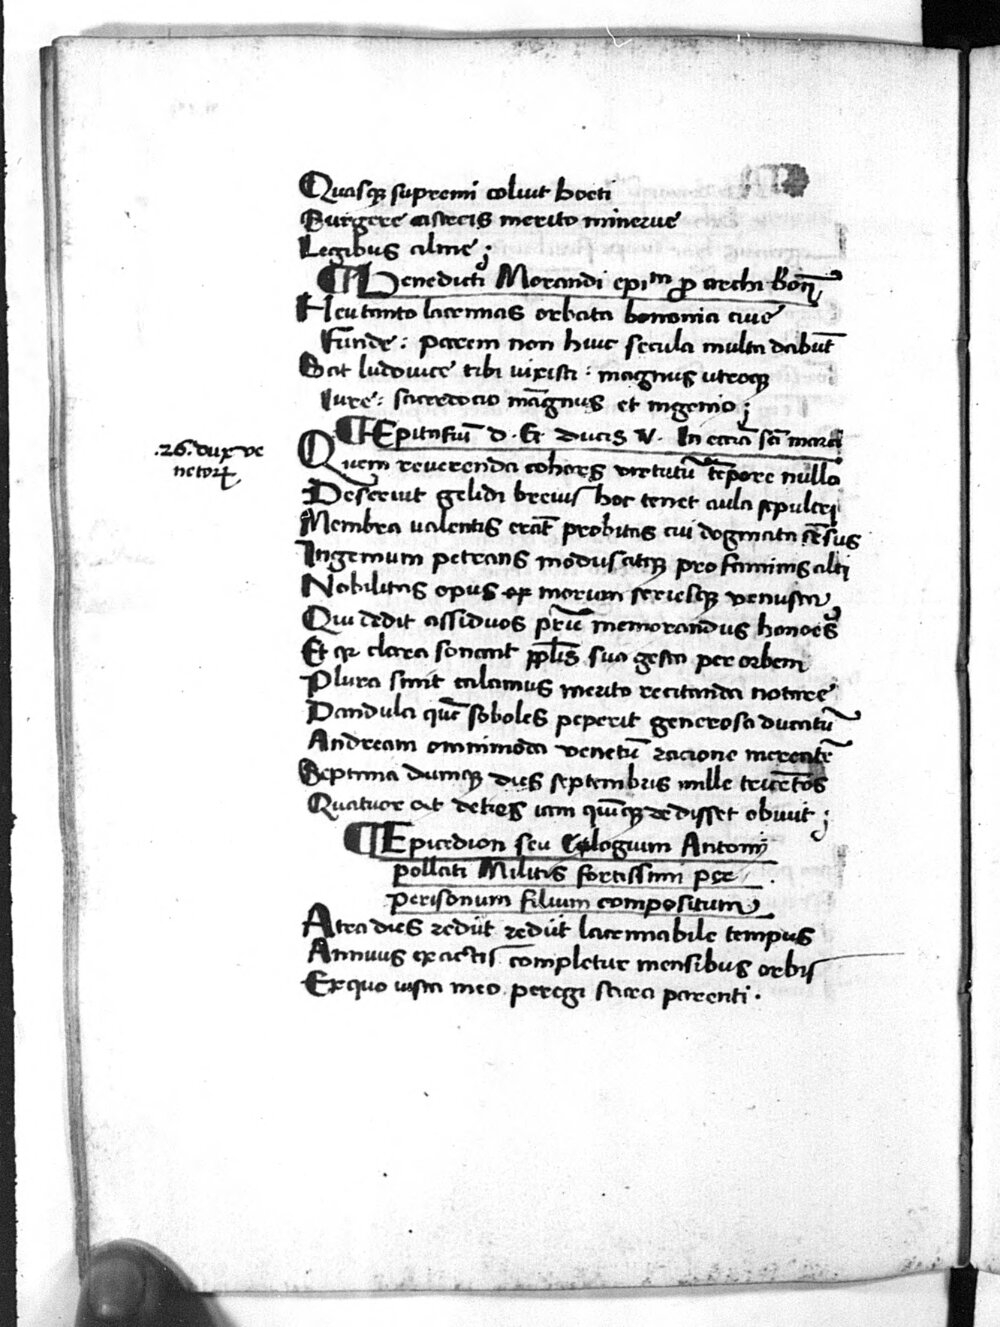 Quasq; supremi coluit boeti
Surgere castris merito minerue
Legibus alme;
¶ Benedicti Morandi epi^m p archi Boñ
Heu tanto lacrimas orbata bononia ciue
Funde: parem non huic secula multa dabūt
Sat ludouice tibi uixisti: magnus utroq;
Iure: sacerdocio māgnus et ingenio;
¶ Epitafiū d. &. ducis V. In ecc̄ia sc̄a maria
.26. dux ve
netorꝝ
Quem reuerenda cohors virtutū tēpore nullo
Deseruit gelidi breuis hoc tenet aula sepulcri
Membra ualentis erāt probitas cui dogmata sēsus
Ingenium petrans modusatq; pro famins alti
Nobilitas opus ex morum seriesq; venustar
Qui dedit assiduos pr̄iē memorandus honores
Et qr clara sonant pplis sua gesta per orbem
Plura sinit calamus merito recitanda notare
Dandula quē soboles peperit generosa ducatū
Andream omnimoda venetū racione merentē
Septima dumq; dies septembris mille trecētos
Quatuor at decies iam quīq; dedisset obiuit;
¶ Epicedion seu Eologuim Antonij
pollati Militis fortissimi per
perisonum filium compositum
Atra dies rediit rediit lacrimabile tempus
Annuus exactis completur mensibus orbis
Ex quo iusta meo peregi sacra parenti.